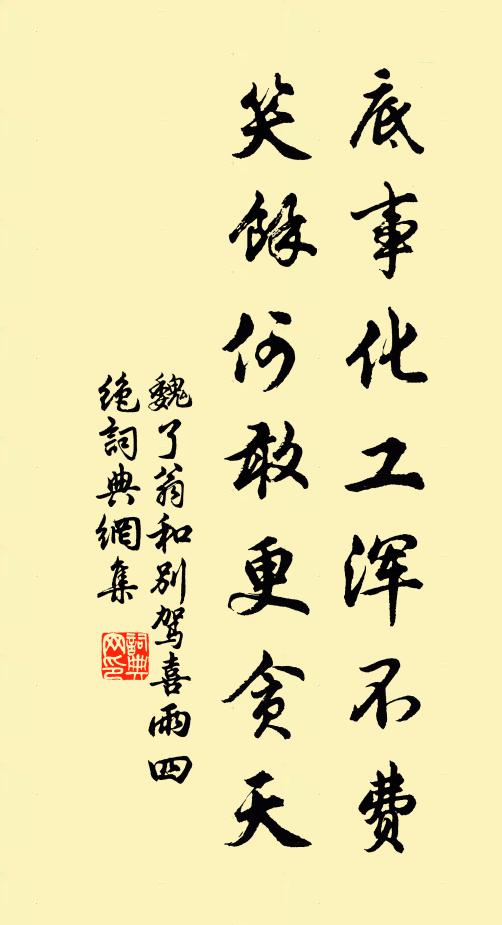 底事化工浑不费
笑馀何敢更贪天
魏了翁和别驾喜雨四
绝词典网集
詞典
网印